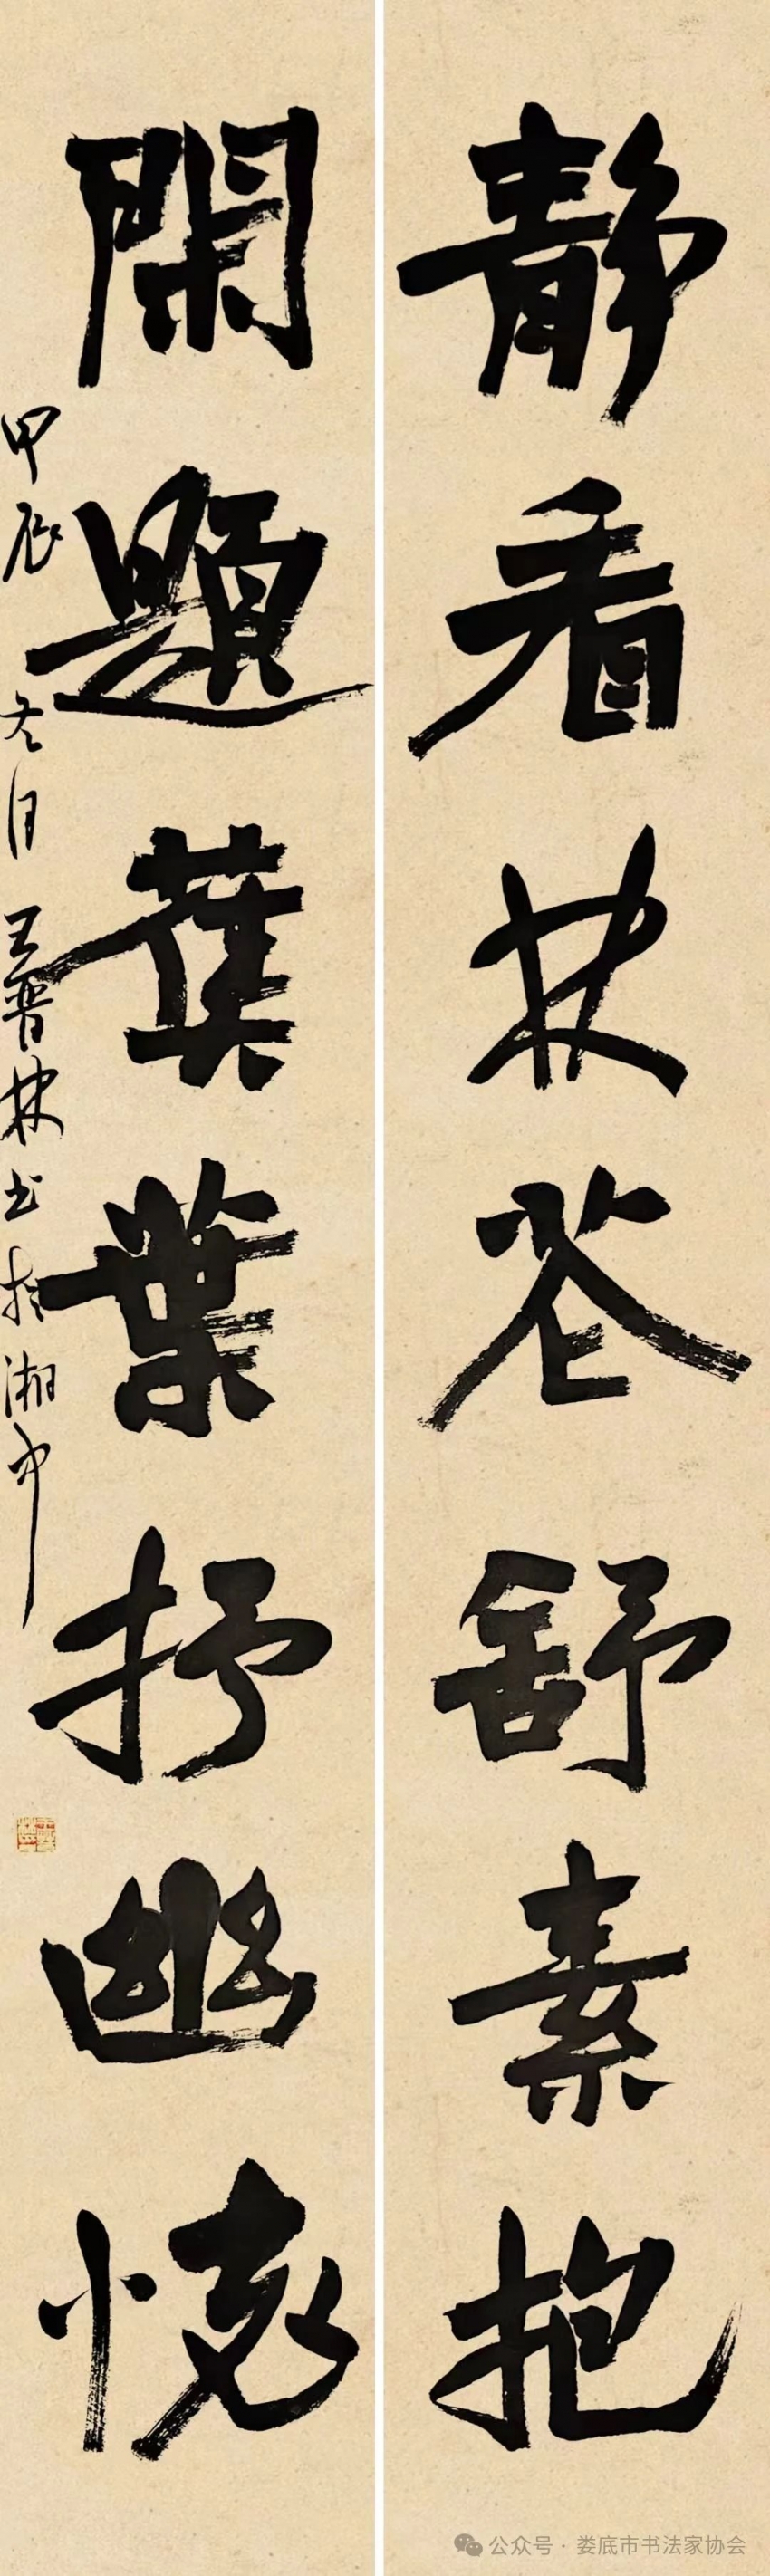 静看林花舒素抱
閑題蕉葉抒幽懷
甲辰冬月王晋林书於湘中
公众号·娄底市书法家协会